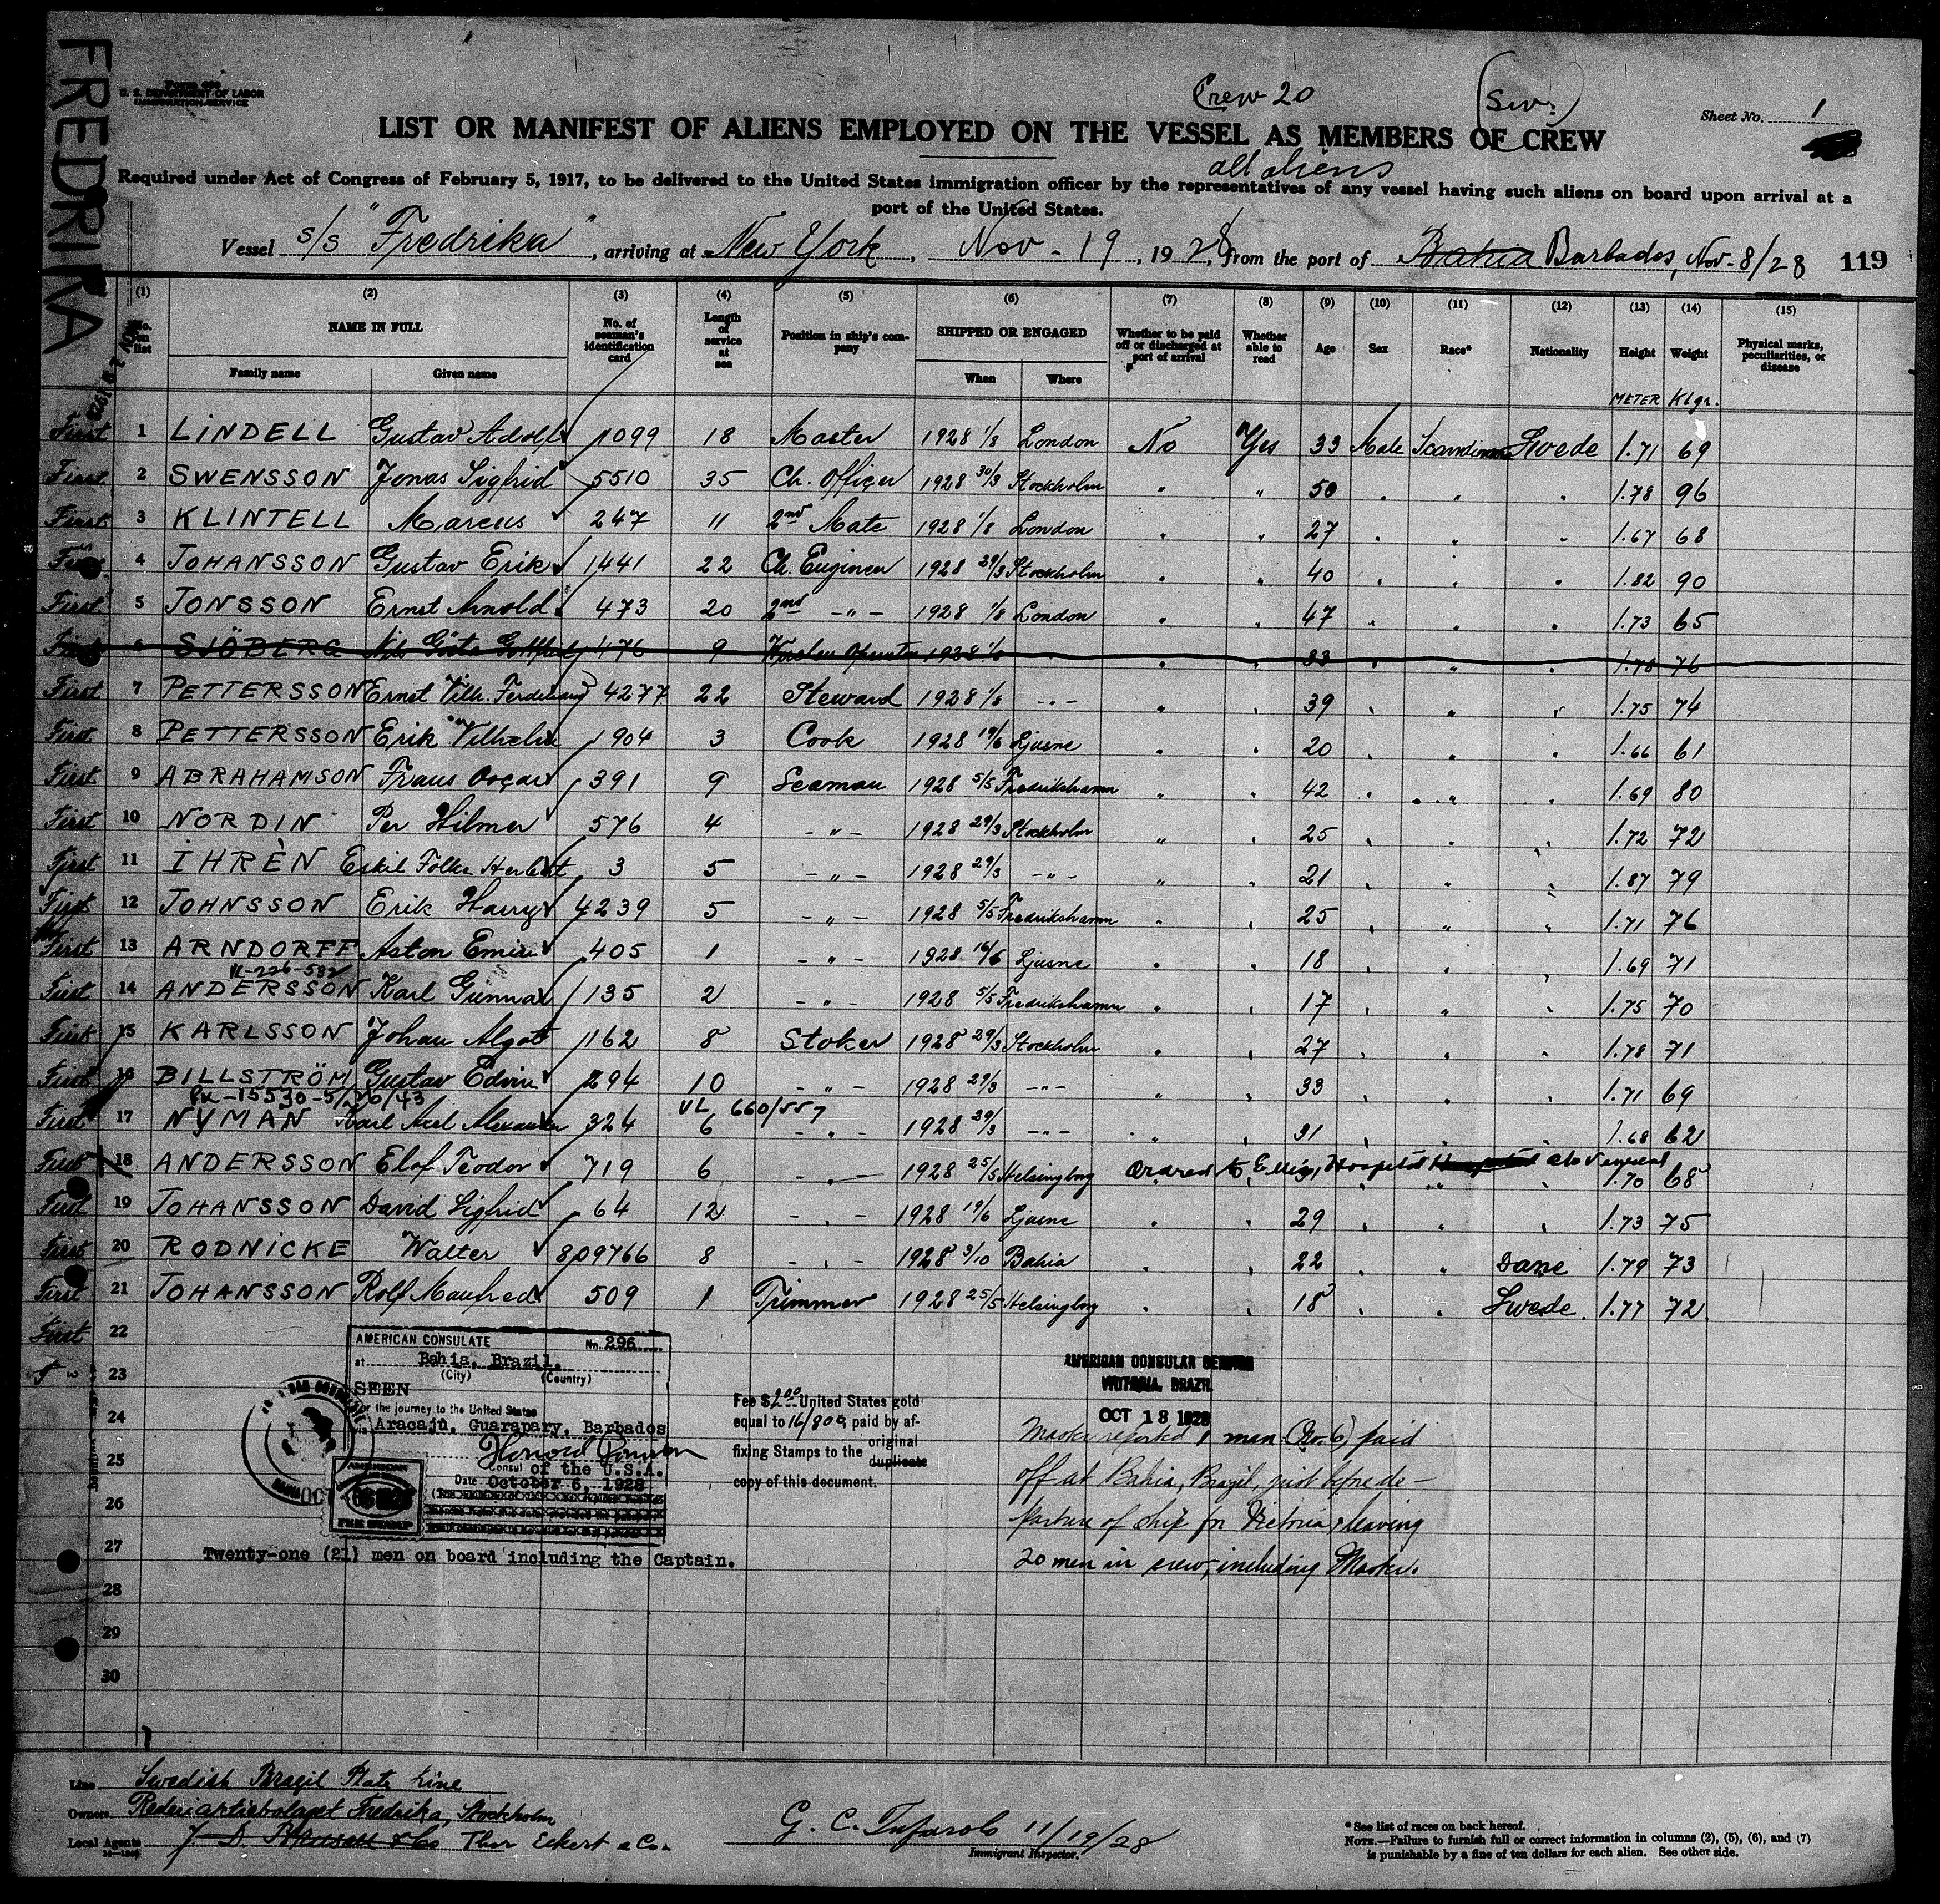 FREDRIKA
Crew 20
(Sw.)
U. S. DEPARTMENT OF LABOR
IMMIGRATION SERVICE
Sheet No. 1
LIST OR MANIFEST OF ALIENS EMPLOYED ON THE VESSEL AS MEMBERS OF CREW
all aliens
Required under Act of Congress of February 5, 1917, to be delivered to the United States immigration officer by the representatives of any vessel having such aliens on board upon arrival at a
port of the United States.
Vessel s/s "Fredrika", arriving at New York, Nov - 19, 1928, from the port of Bahia Barbados, Nov - 8/28 119
(1) (2) (3) (4) (5) (6) (7) (8) (9) (10) (11) (12) (13) (14) (15)
No. on list NAME IN FULL Family name Given name No. of seaman's identification card Length of service at sea Position in ship's company SHIPPED OR ENGAGED When Where Whether to be paid off or discharged at port of arrival Whether able to read Age Sex Race* Nationality Height Weight Physical marks, peculiarities, or disease
METER Klgr.
First 1 LINDELL Gustav Adolf 1099 18 Master 1928 1/8 London No Yes 33 Male Swede 1.71 69
First 2 SWENSSON Jonas Sigfrid 5510 35 Ch. Officer 1928 30/3 Stockholm " " 50 " " " 1.78 96
First 3 KLINTELL Marcus 247 11 2nd Mate 1928 1/8 London " " 27 " " " 1.67 68
First 4 JOHANSSON Gustav Erik 1441 22 Ch. Engineer 1928 29/3 Stockholm " " 40 " " " 1.82 90
First 5 JONSSON Ernst Arnold 473 20 2nd - " - 1928 1/8 London " " 47 " " " 1.73 65
First 6 SJÖBERG Nils Gösta 476 9 1928 1/8 " " 33 " " " 1.78 76
First 7 PETTERSSON Ernst Vilh. Ferdinand 4277 22 Steward 1928 1/8 - " - " " 39 " " " 1.75 74
First 8 PETTERSSON Erik Vilhelm 1904 3 Cook 1928 19/6 Ljusne " " 20 " " " 1.66 61
First 9 ABRAHAMSON Frans Oscar 391 9 Seaman 1928 5/5 Fredrikshamn " " 42 " " " 1.69 80
First 10 NORDIN Per Hilmer 576 4 - " - 1928 29/3 Stockholm " " 25 " " " 1.72 72
First 11 IHRÈN Eskil Folke Herbert 3 5 - " - 1928 29/3 - " - " " 21 " " " 1.87 79
First 12 JOHNSSON Erik Harry 4239 5 - " - 1928 5/5 Fredrikshamn " " 25 " " " 1.71 76
First 13 ARNDORFF Aston 405 1 - " - 1928 16/6 Ljusne " " 18 " " " 1.69 71
First 14 ANDERSSON Karl Gunnar 135 2 - " - 1928 5/5 Fredrikshamn " " 17 " " " 1.75 70
First 15 KARLSSON Johan Algot 1162 8 Stoker 1928 29/3 Stockholm " " 27 " " " 1.78 71
First 16 BILLSTRÖM Gustav Edvin 294 10 - " - 1928 29/3 - " - " " 33 " " " 1.71 69
VL 660/557
First 17 NYMAN Karl Axel Alexander 324 6 - " - 1928 29/3 - " - " " 31 " " " 1.68 62
First 18 ANDERSSON Elof Teodor 719 6 - " - 1928 25/5 Helsingborg Hospital 1.70 68
First 19 JOHANSSON David Sigfrid 64 12 - " - 1928 19/6 Ljusne " " 29 " " " 1.73 75
First 20 RODNICKE Walter 809766 8 - " - 1928 3/10 Bahia " " 22 " " Dane 1.79 73
First 21 JOHANSSON Rolf Manfred 509 1 Trimmer 1928 25/5 Helsingborg " " 18 " " Swede 1.77 72
First 22
23
24
25
26
27
28
29
30
AMERICAN CONSULATE No. 296
at Bahia, Brazil.
(City) (Country)
SEEN
for the journey to the United States
via Aracajú, Guarapary, Barbados
Consul of the U.S.A.
Date October 6, 1928
Twenty-one (21) men on board including the Captain.
Fee $2.00 United States gold
equal to 16/809 paid by af-
fixing Stamps to the original
duplicate
copy of this document.
AMERICAN CONSULAR SERVICE
VICTORIA, BRAZIL
OCT 13 1928
Master reported 1 man (No. 6) paid
off at Bahia, Brazil, just before de-
parture of ship for Victoria, leaving
20 men in crew, including Master.
Line Swedish Brazil Plate Line
Owners Rederiaktiebolaget Fredrika, Stockholm
Local Agents Thor Eckert & Co.
11/19/28
Immigrant Inspector.
* See list of races on back hereof.
NOTE.—Failure to furnish full or correct information in columns (2), (5), (6), and (7)
is punishable by a fine of ten dollars for each alien. See other side.